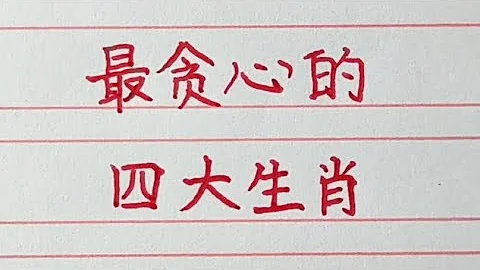 最贪心的
四大生肖